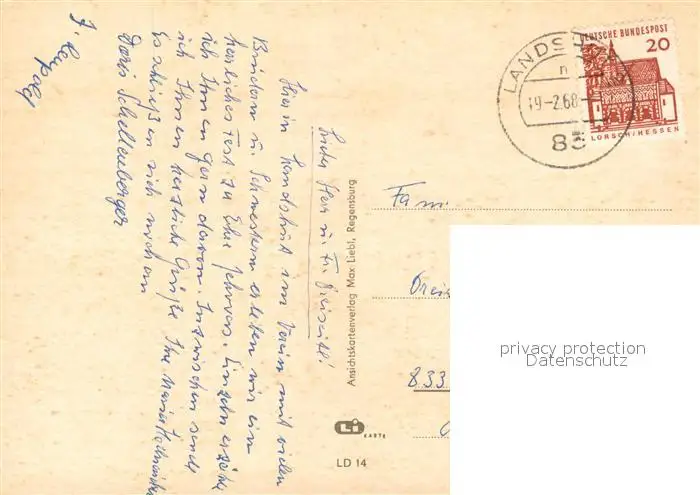 Lieber Herr u. Fr.
Hier in Landshut im Verein mit vielen
Brüdern u. Schwestern erleben wir ein
herrliches Fest zu Ehre Jehovas. Einzeln erzähle
ich Ihnen gern davon. Inzwischen sende
ich Ihnen herzliche Grüße Ihre Maria
Es schließen sich noch an
Doris Schellenberger
J.
Ansichtskartenverlag Max Liebl, Regensburg
Li
KARTE
LD 14
LANDSHUT
19-2.68-
83
DEUTSCHE BUNDESPOST
20
LORSCH/HESSEN
Fam.
833
privacy protection
Datenschutz